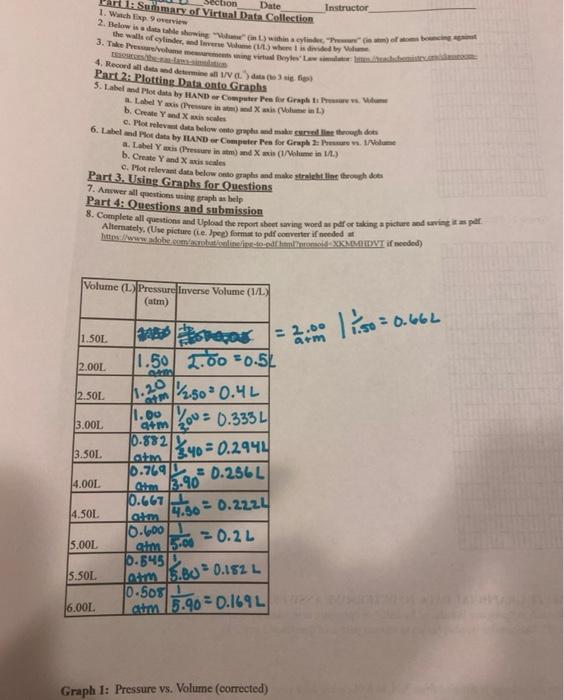 Section Date Instructor
Part 1: Summary of Virtual Data Collection
1. Watch Exp. 9 overview
2. Below is a data table showing "Volume" (in L) within a cylinder, "Pressure" (in atm) of atoms bouncing against
the walls of cylinder, and Inverse Volume (1/L) where 1 is divided by Volume.
3. Take Pressure/volume measurements using virtual Boyles' Law simulator:
resources/the-gas-laws-simulation
4. Record all data and determine all 1/V data (to 3 sig. figs)
Part 2: Plotting Data onto Graphs
5. Label and Plot data by HAND or Computer Pen for Graph 1: Pressure vs. Volume
a. Label Y axis (Pressure in atm) and X axis (Volume in L)
b. Create Y and X axis scales
c. Plot relevant data below onto graphs and make curved line through dots
6. Label and Plot data by HAND or Computer Pen for Graph 2: Pressure vs. 1/Volume
a. Label Y axis (Pressure in atm) and X axis (1/Volume in 1/L)
b. Create Y and X axis scales
c. Plot relevant data below onto graphs and make straight line through dots
Part 3. Using Graphs for Questions
7. Answer all questions using graph as help
Part 4: Questions and submission
8. Complete all questions and Upload the report sheet saving word as pdf or taking a picture and saving it as pdf.
Alternately, (Use picture (i.e. Jpeg) format to pdf converter if needed at
if needed)
Volume (L) Pressure (atm) Inverse Volume (1/L)
1.50L = 2.00 atm | 1/1.50 = 0.66L
2.00L 1.50 atm 1/2.00 = 0.5L
2.50L 1.20 atm 1/2.50 = 0.4L
3.00L 1.00 atm 1/300 = 0.333L
3.50L 0.882 atm 1/3.40 = 0.294L
4.00L 0.769 atm 1/3.90 = 0.256L
4.50L 0.667 atm 1/4.50 = 0.222L
5.00L 0.600 atm 1/5.00 = 0.2L
5.50L 0.545 atm = 0.182 L
6.00L 0.508 atm 1/5.90 = 0.169L
Graph 1: Pressure vs. Volume (corrected)